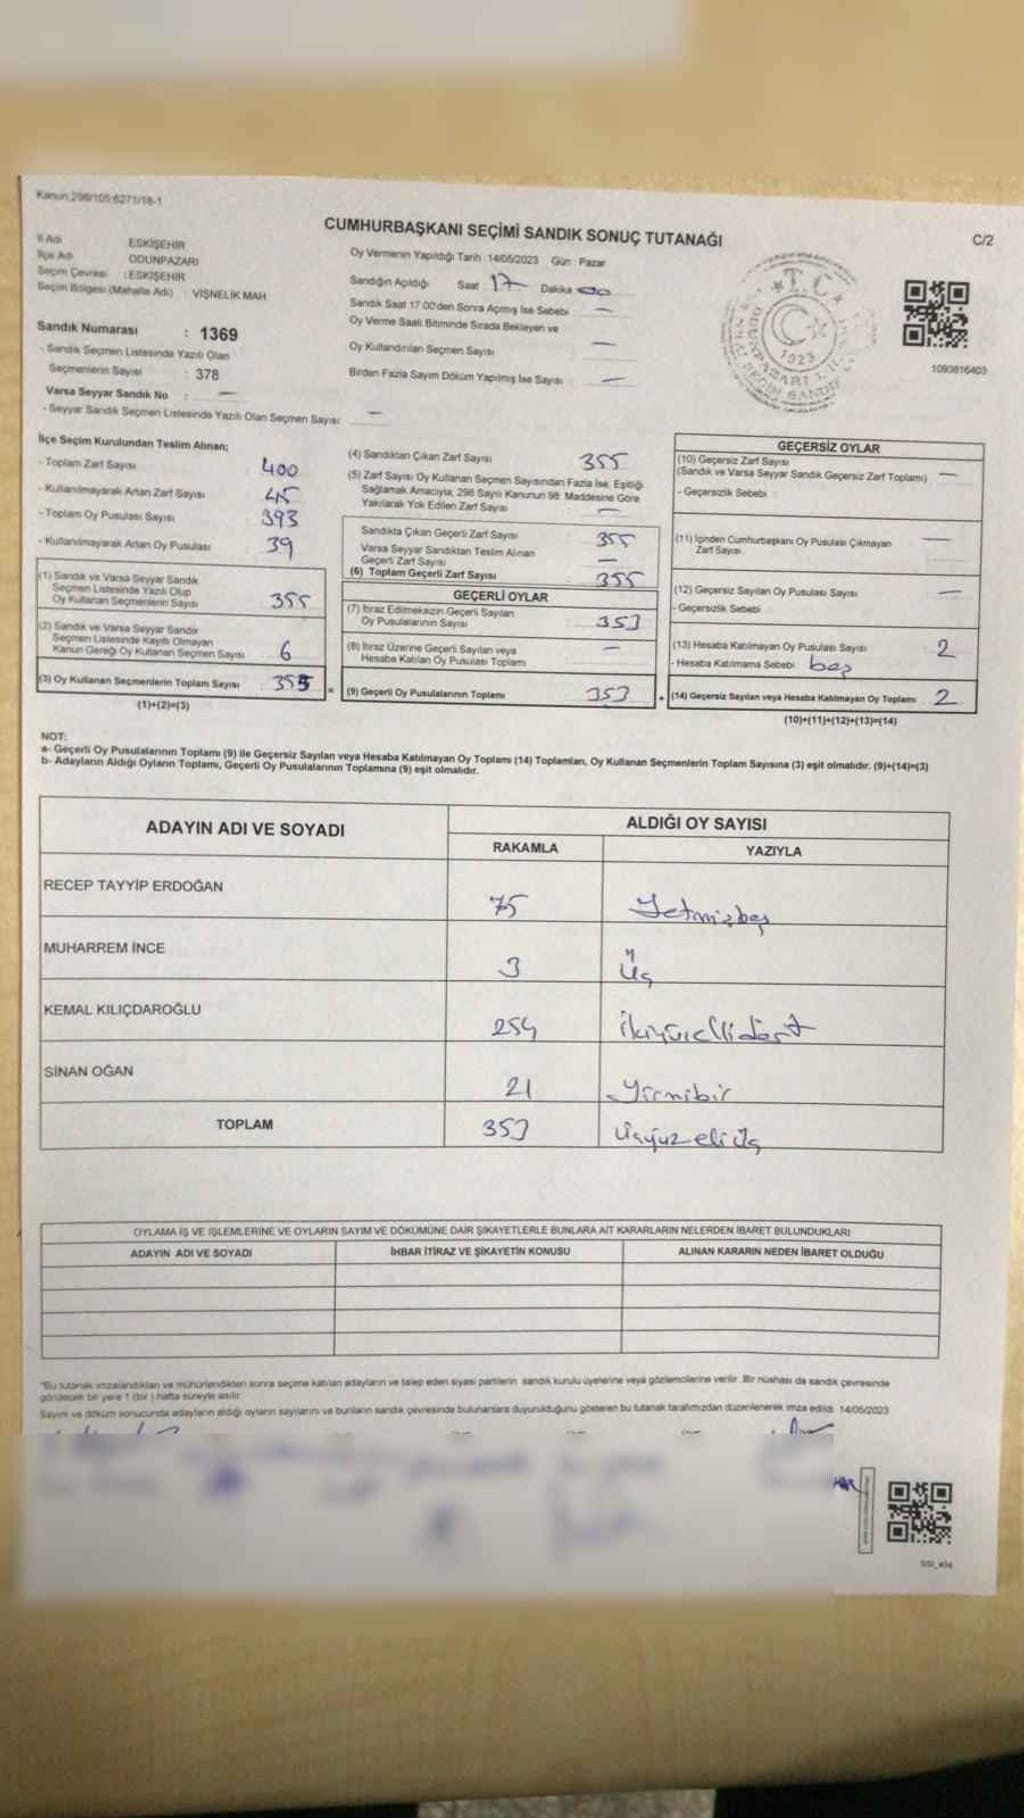 Kanun 298/105:6271/18-1
CUMHURBAŞKANI SEÇİMİ SANDIK SONUÇ TUTANAĞI
C/2
İl Adı ESKİŞEHİR
İlçe Adı ODUNPAZARI
Seçim Çevresi : ESKİŞEHİR
Seçim Bölgesi (Mahalle Adı) VİŞNELİK MAH
Sandık Numarası : 1369
- Sandık Seçmen Listesinde Yazılı Olan
Seçmenlerin Sayısı : 378
Varsa Seyyar Sandık No : —
- Seyyar Sandık Seçmen Listesinde Yazılı Olan Seçmen Sayısı: —
Oy Vermenin Yapıldığı Tarih :14/05/2023 Gün : Pazar
Sandığın Açıldığı Saat 17 Dakika 00
Sandık Saat 17:00'den Sonra Açmış İse Sebebi —
Oy Verme Saati Bitiminde Sırada Bekleyen ve
Oy Kullandırılan Seçmen Sayısı —
Birden Fazla Sayım Döküm Yapılmış İse Sayısı —
T.C.
1923
1093816403
İlçe Seçim Kurulundan Teslim Alınan;
- Toplam Zarf Sayısı 400
- Kullanılmayarak Artan Zarf Sayısı 45
- Toplam Oy Pusulası Sayısı 393
- Kullanılmayarak Artan Oy Pusulası 39
(1) Sandık ve Varsa Seyyar Sandık
Seçmen Listesinde Yazılı Olup
Oy Kullanan Seçmenlerin Sayısı 355
(2) Sandık ve Varsa Seyyar Sandık
Seçmen Listesinde Kayıtlı Olmayan
Kanun Gereği Oy Kullanan Seçmen Sayısı 6
(3) Oy Kullanan Seçmenlerin Toplam Sayısı 355
(1)+(2)=(3)
(4) Sandıktan Çıkan Zarf Sayısı 355
(5) Zarf Sayısı Oy Kullanan Seçmen Sayısından Fazla İse, Eşitliği
Sağlamak Amacıyla, 298 Sayılı Kanunun 98. Maddesine Göre
Yakılarak Yok Edilen Zarf Sayısı —
Sandıkta Çıkan Geçerli Zarf Sayısı 355
Varsa Seyyar Sandıktan Teslim Alınan
Geçerli Zarf Sayısı —
(6) Toplam Geçerli Zarf Sayısı 355
GEÇERLİ OYLAR
(7) İtiraz Edilmeksizin Geçerli Sayılan
Oy Pusulalarının Sayısı 353
(8) İtiraz Üzerine Geçerli Sayılan veya
Hesaba Katılan Oy Pusulası Toplamı —
= (9) Geçerli Oy Pusulalarının Toplamı 353
GEÇERSİZ OYLAR
(10) Geçersiz Zarf Sayısı
(Sandık ve Varsa Seyyar Sandık Geçersiz Zarf Toplamı) —
- Geçersizlik Sebebi :
(11) İçinden Cumhurbaşkanı Oy Pusulası Çıkmayan
Zarf Sayısı —
(12) Geçersiz Sayılan Oy Pusulası Sayısı —
- Geçersizlik Sebebi
(13) Hesaba Katılmayan Oy Pusulası Sayısı 2
- Hesaba Katılmama Sebebi : boş
+ (14) Geçersiz Sayılan veya Hesaba Katılmayan Oy Toplamı 2
(10)+(11)+(12)+(13)=(14)
NOT:
a- Geçerli Oy Pusulalarının Toplamı (9) ile Geçersiz Sayılan veya Hesaba Katılmayan Oy Toplamı (14) Toplamları, Oy Kullanan Seçmenlerin Toplam Sayısına (3) eşit olmalıdır. (9)+(14)=(3)
b- Adayların Aldığı Oyların Toplamı, Geçerli Oy Pusulalarının Toplamına (9) eşit olmalıdır.
ADAYIN ADI VE SOYADI ALDIĞI OY SAYISI
RAKAMLA YAZIYLA
RECEP TAYYİP ERDOĞAN 75 Yetmişbeş
MUHARREM İNCE 3 Üç
KEMAL KILIÇDAROĞLU 254 ikiyüzellidört
SİNAN OĞAN 21 Yirmibir
TOPLAM 353 üçyüz elli üç
OYLAMA İŞ VE İŞLEMLERİNE VE OYLARIN SAYIM VE DÖKÜMÜNE DAİR ŞİKAYETLERLE BUNLARA AİT KARARLARIN NELERDEN İBARET BULUNDUKLARI
ADAYIN ADI VE SOYADI İHBAR İTİRAZ VE ŞİKAYETİN KONUSU ALINAN KARARIN NEDEN İBARET OLDUĞU
*Bu tutanak imzalandıktan ve mühürlendikten sonra seçime katılan adayların ve talep eden siyasi partilerin sandık kurulu üyelerine veya gözlemcilerine verilir. Bir nüshası da sandık çevresinde
görülecek bir yere 1 (bir ) hafta süreyle asılır.
Sayım ve döküm sonucunda adayların aldığı oyların sayılarını ve bunların sandık çevresinde bulunanlara duyurulduğunu gösteren bu tutanak tarafımızdan düzenlenerek imza edildi. 14/05/2023